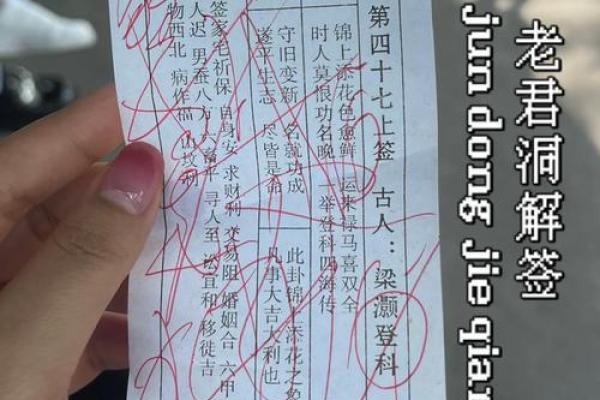 老君洞解签
jun dong jie qian
第四十七上签 古人：梁灏登科
锦上添花色愈鲜 运来禄马喜双全
时人莫恨功名晚 一举登科四海传
守旧变新 名就功成
遂平生志 尽皆是命
此卦锦上添花之象
凡事大吉大利也
签家宅祈保 自身安 求财利 交易阻 婚姻合 六甲
人迟 蚕八方 六畜平 寻人至 讼宜和 移徙吉
物西北 病作福 山坟